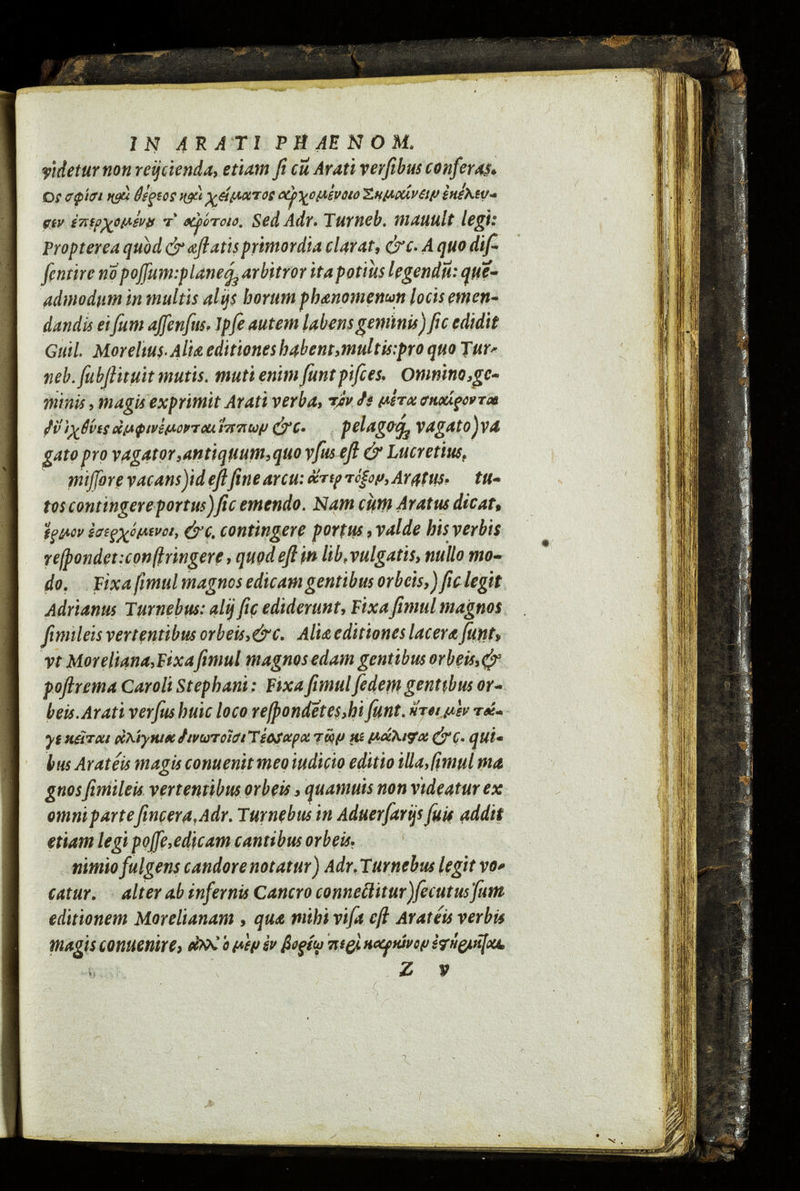 IN ARATI PHÆNOM.
videtur non reijcienda, etiam si cū Arati versibus conferas.
Ος σφίσι καὶ θέρεος καὶ χείματος ἀρχομένοιο Σημαίνειν ἐκέλευ-
σεν ἐπερχομένου τ' ἀρότοιο. Sed Adr. Turneb. mauult legi:
Propterea quòd & æstatis primordia clarat, &c. A quo dis-
sentire nō possum: planeq́; arbitror ita potius legendū: quē-
admodum in multis alijs horum phænomenωn locis emen-
dandis ei sum assensus. Ipse autem labens geminis) sic edidit
Guil. Morelius. Aliæ editiones habent, multis: pro quo Tur-
neb. substituit mutis. muti enim sunt pisces. Omnino, ge-
minis, magis exprimit Arati verba, τὸν δὲ μέτα σκαίροντα
δύ' ἰχθύες ἀμφινέμονται ἵππων &c. pelagoq́; vagato) va
gato pro vagator, antiquum, quo vsus est & Lucretius,
missore vacans) id est sine arcu: ἄτερ τόξου, Aratus. tu-
tos contingere portus) sic emendo. Nam cùm Aratus dicat,
ἕρμον ἐσερχόμενοι, &c. contingere portus, valde his verbis
respondet: constringere, quod est in lib. vulgatis, nullo mo-
do. Fixa simul magnos edicam gentibus orbeis,) sic legit
Adrianus Turnebus: alij sic ediderunt, Fixa simul magnos
simileis vertentibus orbeis, &c. Aliæ editiones laceræ sunt,
vt Moreliana, Fixa simul magnos edam gentibus orbeis, &
postrema Caroli Stephani: Fixa simul sedem gentibus or-
beis. Arati versus huic loco respondētes, hi sunt. ἤτοι μὲν τά-
γε κεῖται ἀλίγκια δινωτοῖσι Τέσσαρα τῶν κε μάλιστα &c. qui-
bus Aratéis magis conuenit meo iudicio editio illa, simul ma
gnos simileis vertentibus orbeis, quamuis non videatur ex
omni parte sincera, Adr. Turnebus in Aduersarijs suis addit
etiam legi posse, edicam cantibus orbeis.
nimio fulgens candore notatur) Adr. Turnebus legit vo-
catur. alter ab infernis Cancro connectitur) secutus sum
editionem Morelianam, quæ mihi visa est Aratéis verbis
magis conuenire, ἀλλ' ὁ μὲν ἐν βορέῳ περὶ καρκίνον ἐστήρικται.
Z v